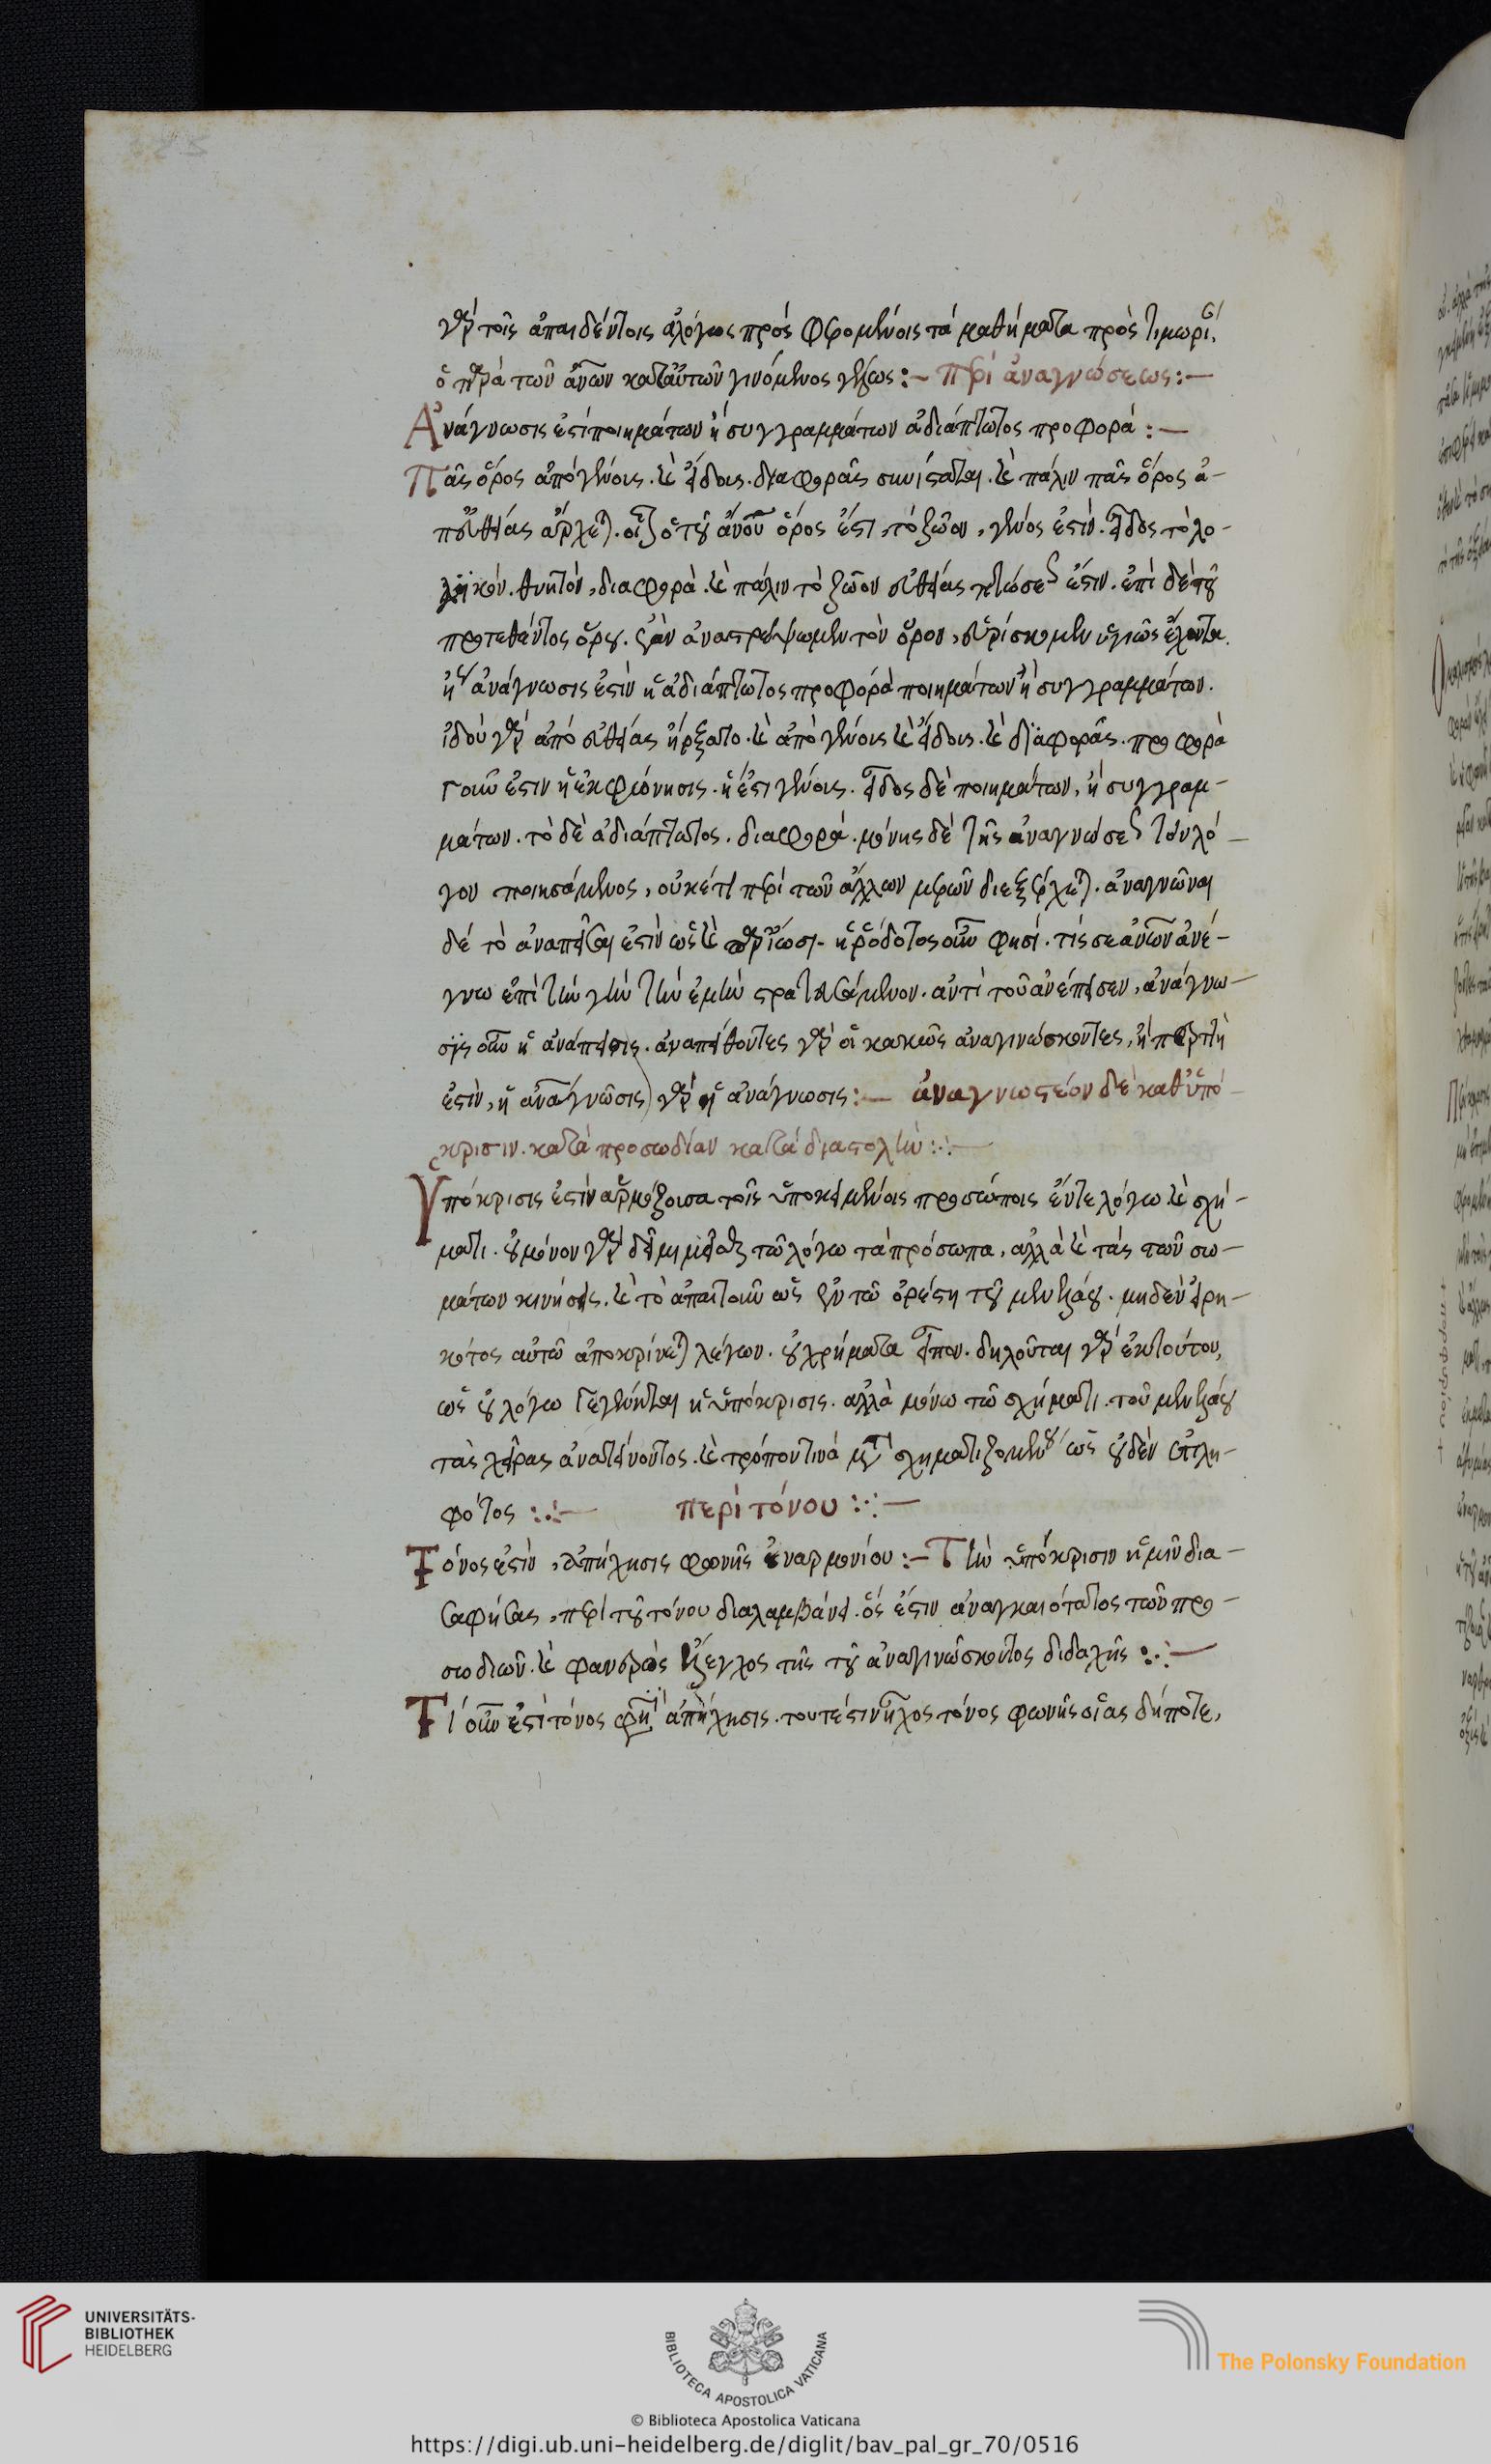 γὰρ τοῖς ἀπαιδεύτοις ἀλόγως προσφερομένοις τὰ μαθήματα πρὸς τιμωρί.
ὁ παρὰ τῶν ἀνων κατ αὐτῶν γινόμενος γέλως :– περὶ ἀναγνώσεως :—
Ἀνάγνωσις ἐστὶ ποιημάτων ἢ συγγραμμάτων ἀδιάπτωτος προφορά :—
Πᾶς ὅρος ἀπὸ γένους. καὶ εἴδους. διαφορᾶς συνίσταται. καὶ πάλιν πᾶς ὅρος ἀ-
π᾽ εὐθείας ἄρχεται. οἷον ὁ τοῦ ἀνου ὅρος ἐστι, τὸ ζῶον, γένος ἐστίν. εἶδος τὸ λο-
γικόν. θνητὸν, διαφορὰ. καὶ πάλιν τὸ ζῶον εὐθείας πτώσεως ἐστιν. ἐπὶ δὲ τοῦ
προτεθέντος ὅρου. ἐὰν ἀναστρέψωμεν τὸν ὅρον, εὑρίσκομεν ὑγιῶς ἔχοντα.
ἀνάγνωσις ἐστὶν ἡ ἀδιάπτωτος προφορὰ ποιημάτων ἢ συγγραμμάτων.
ἰδοὺ γὰρ ἀπὸ εὐθείας ἤρξατο. καὶ ἀπὸ γένους καὶ εἴδους. καὶ διαφορᾶς. προφορὰ
γοῦν ἐστιν ἡ ἐκφώνησις. ἥ ἐστι γένους. εἶδος δὲ ποιημάτων, ἢ συγγραμ-
μάτων. τὸ δὲ ἀδιάπτωτος. διαφορά. μόνης δὲ τῆς ἀναγνώσεως τὸν λό-
γον ποιησάμενος, οὐκέτι περὶ τῶν ἄλλων μερῶν διεξέρχεται. ἀναγνῶναι
δὲ τὸ ἀναπεῖσαι ἐστὶν ὡς καὶ ἡρόδοτος οὖν φησί. τίς σε ἀνων ἀνέ-
γνω ἐπὶ τὴν γῆν τὴν ἐμὴν στρατευσάμενον. ἀντὶ τοῦ ἀνέπεισεν, ἀνάγνω-
σις οὖν ἡ ἀνάπεισις. ἀναπείθοντες γὰρ οἱ κακῶς ἀναγινώσκοντες, ἢ περιττή
ἐστὶν, ἡ ἀνά γνῶσις γὰρ ἡ ἀνάγνωσις :— ἀναγνωστέον δὲ καθ ὑπό-
κρισιν. κατὰ προσωδίαν κατὰ διαστολὴν :·:—
Ὑπόκρισις ἐστὶν ἁρμόζουσα τοῖς ὑποκειμένοις προσώποις ἔν τε λόγω καὶ σχή-
ματι. οὐ μόνον γὰρ δεῖ μιμεῖσθαι τῶ λόγω τὰ πρόσωπα, ἀλλὰ καὶ τὰς τῶν σω-
μάτων κινήσεις. καὶ τὸ ἀπαιτοῦν ὡς ἐν τῶ ὀρέστη τοῦ μενελάου. μηδὲν εἰρη-
κότος αὐτῶ ἀποκρίνεται λέγων. οὐ χρήματα εἶπον. δηλοῦται γὰρ ἐκ τούτου,
ὡς οὐ λόγω γεγένηται ἡ ὑπόκρισις. ἀλλὰ μόνω τῶ σχήματι. τοῦ μενελάου
τὰς χεῖρας ἀνατείνοντος. καὶ τρόπον τινά σχηματιζομένου ὡς οὐδὲν εἰλη-
φότος :·:— περὶ τόνου :·:—
Τόνος ἐστὶν, ἀπήχησις φωνῆς ἐναρμονίου :– Τὴν ὑπόκρισιν ἡμῖν δια-
σαφήσας, περὶ τοῦ τόνου διαλαμβάνει. ὅς ἐστιν ἀναγκαιότατος τῶν προ-
σωδιῶν. καὶ φανερὸς ἔλεγχος τῆς τοῦ ἀναγινώσκοντος διδαχῆς :·:—
Τί οὖν ἐστὶ τόνος φησὶ ἀπήχησις. τουτέστιν ἦχος τόνος φωνῆς οἵας δήποτε,
περφυρίου
UNIVERSITÄTS-
BIBLIOTHEK
HEIDELBERG
BIBLIOTECA APOSTOLICA VATICANA
The Polonsky Foundation
© Biblioteca Apostolica Vaticana
https://digi.ub.uni-heidelberg.de/diglit/bav_pal_gr_70/0516